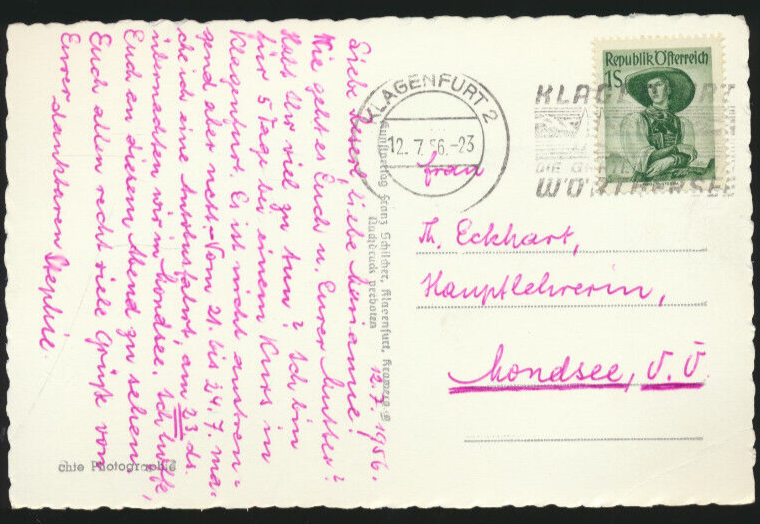 12.7.1956.
Liebe Theres, liebe Marianne!
Wie geht es Euch u. Eurer Mutter?
Habt Ihr viel zu tun? Ich bin
für 5 Tage bei einem Kurs in
Klagenfurt. Es ist nicht anstren=
gend aber nett. Vom 21. bis 24.7. ma,
che ich eine Autobusfahrt, am 23. ds.
übernachten wir in Mondsee. Ich hoffe,
Euch an diesem Abend zu sehen.
Euch allen recht viele Grüße von
Eurer dankbaren Stephie.
chte Photographie
Kunstverlag Franz Schilcher, Klagenfurt,
Nachdruck verboten
KLAGENFURT 2
12. 7. 56.-23
KLAGENFURT
WÖRTHERSEE
Republik Österreich
1S
Frau
Th. Eckhart,
Hauptlehrerin,
Mondsee, O.Ö.